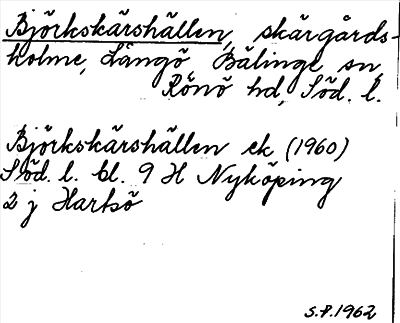 Björkskärshällen, skärgårds-
holme, Långö Bälinge sn,
Rönö hd, Söd. l.
Björkskärshällen ek (1960)
Söd. l. bl. 9 H Nyköping
2 j Hartsö
S.P. 1962